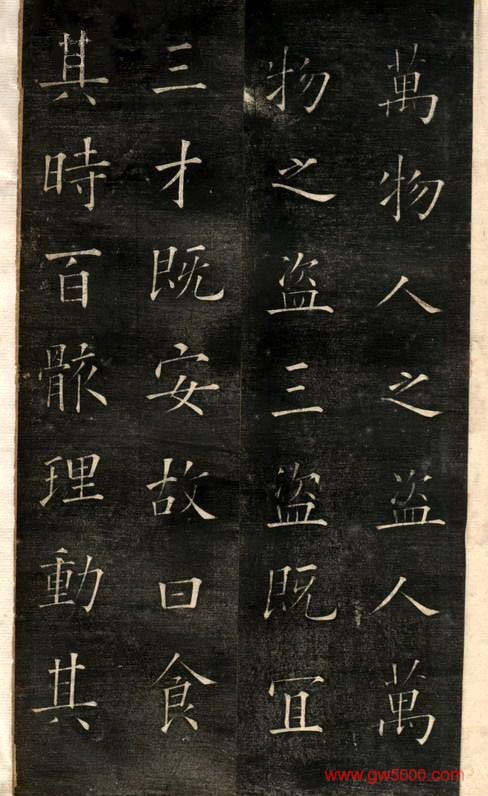 萬物人之盗人萬
物之盗三盗既冝
三才既安故曰食
其時百骸理動其
www.gw5000.com